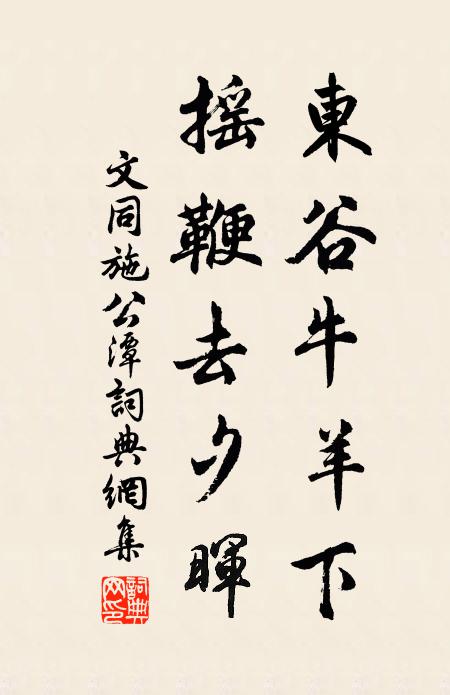 東谷牛羊下
摇鞭去夕暉
文同施公潭詞典網集
詞典網印